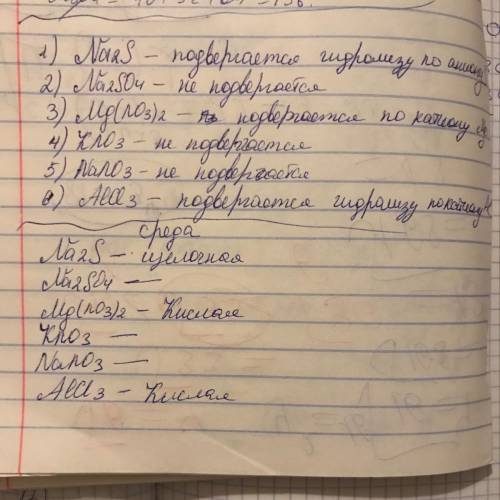 1) Na2S - подвергается гидролизу по аниону
2) Na2SO4 - не подвергается
3) Mg(NO3)2 - подвергается по катиону
4) KNO3 - не подвергается
5) NaNO3 - не подвергается
6) AlCl3 - подвергается гидролизу по катиону
среда
Na2S - щелочная
Na2SO4 —
Mg(NO3)2 - Кислая
KNO3 —
NaNO3 —
AlCl3 - Кислая